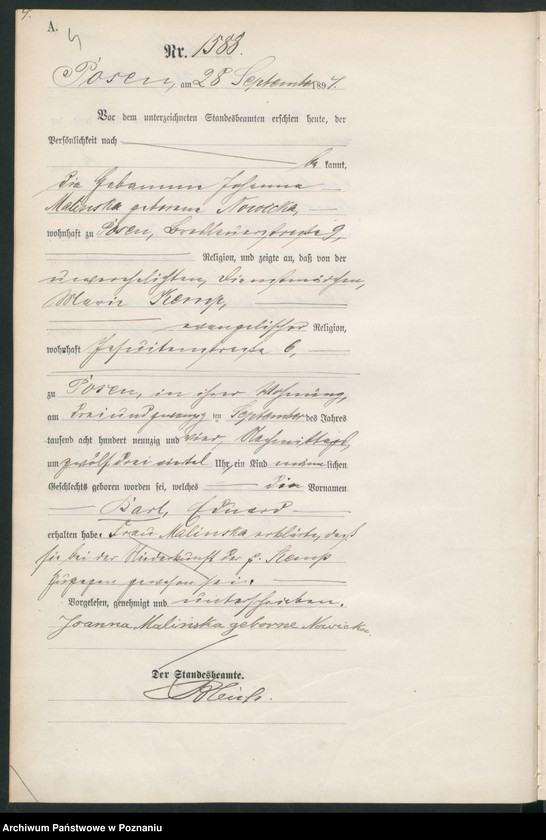 4.
A.
Nr. 1588.
Posen, am 28 September 1894.
Vor dem unterzeichneten Standesbeamten erschien heute, der
Persönlichkeit nach
be kannt,
die Hebamme Johanna
Malinska geborene Nowicka,
wohnhaft zu Posen, Breslauerstraße 9,
Religion, und zeigte an, daß von der
unverehelichten Dienstmädchen,
Marie Kemp,
evangelischer Religion,
wohnhaft Jesuitenstraße 6,
zu Posen, in ihrer Wohnung,
am dreiundzwanzig ten September des Jahres
tausend acht hundert neunzig und vier, Nachmittags,
um zwölf drei viertel Uhr, ein Kind männlichen
Geschlechts geboren worden sei, welches die Vornamen
Karl, Eduard
erhalten habe. Frau Malinska erklärte, daß
sie bei der Niederkunft der p. Kemp
zugegen gewesen sei.
Vorgelesen, genehmigt und unterschrieben.
Joanna Malińska geborne Nowicka.
Der Standesbeamte.
Archiwum Państwowe w Poznaniu